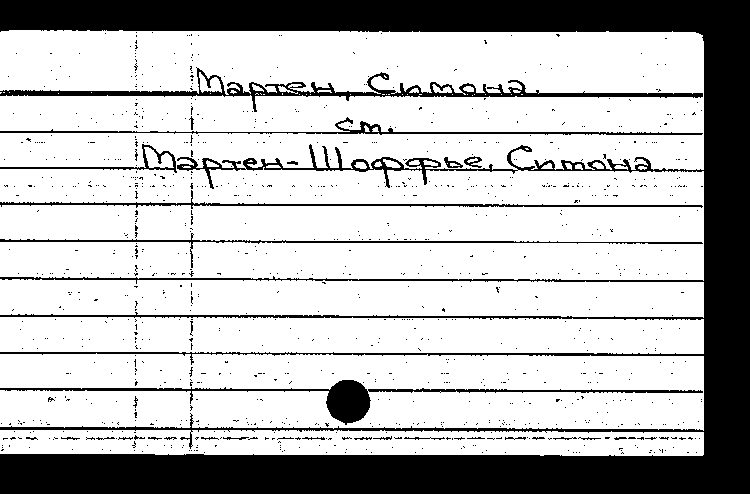 Мартен, Симона.
см.
Мартен-Шоффье, Симона